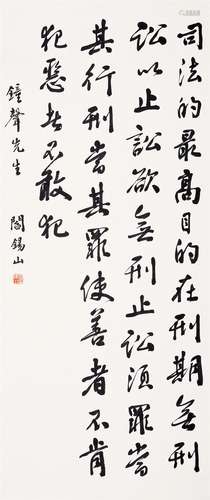 司法的最高目的在刑期無刑
訟以止訟欲無刑止訟須罪當
其行刑當其罪使善者不肯
犯惡者不敢犯
鐘聲先生
閻錫山